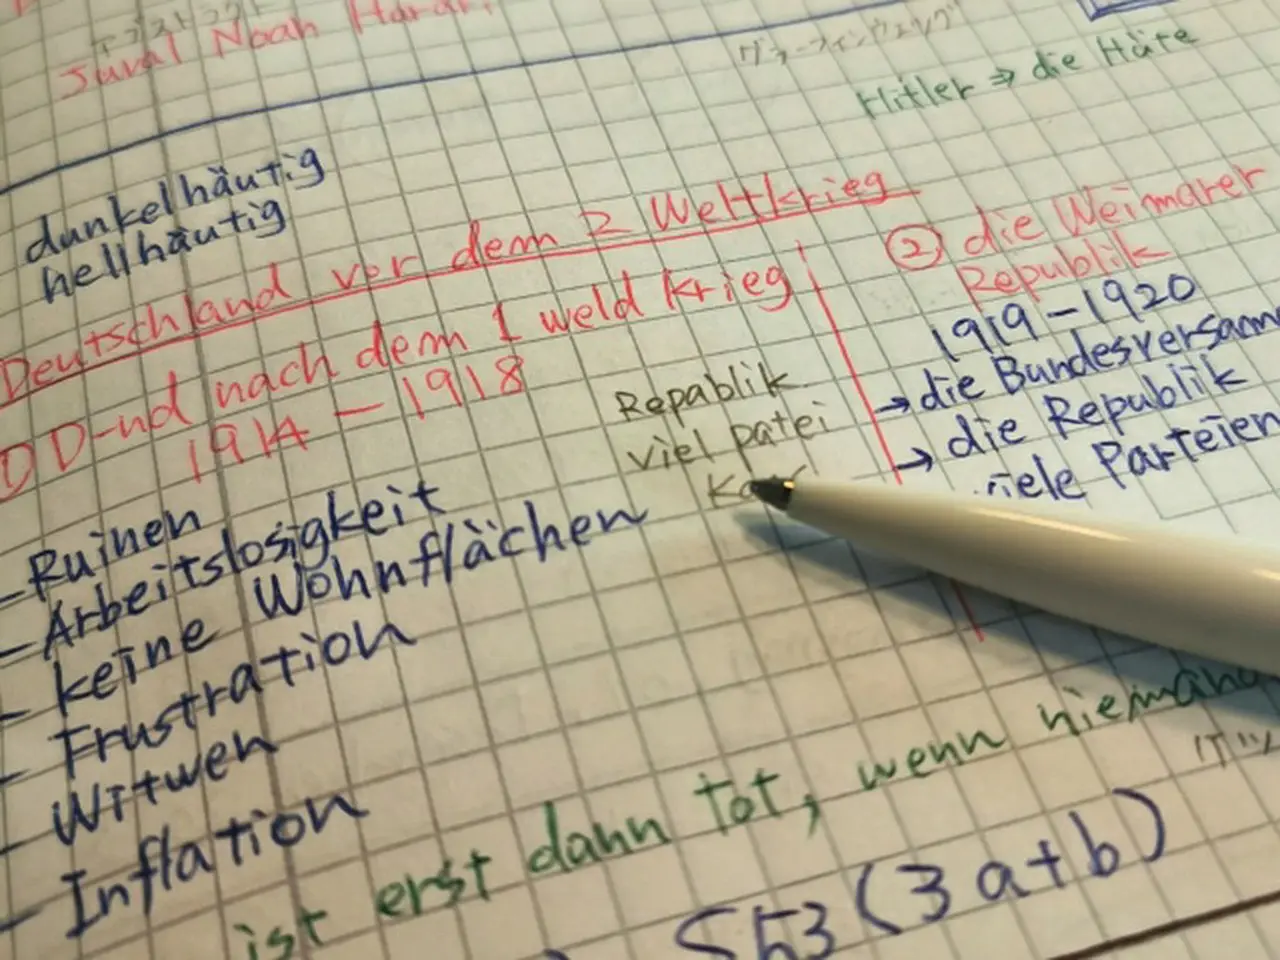 アブストラクト
Juval Noah Harari
ヴァーフィンウェング
Hitler ⇒ die Häte
dunkelhäutig
hellhäutig
Deutschland vor dem 2 Weltkrieg
① D-nd nach dem 1 weld krieg
1914 - 1918
- Ruinen
- Arbeitslosigkeit
- keine Wohnflächen
- Frustration
- Witwen
- Inflation
Republik
viel patei
② die Weimarer
Republik
1919 - 1920
→ die Bundesversamm
→ die Republik
viele Parteien
ist erst dann tot, wenn niemand
S53 (3a+b)